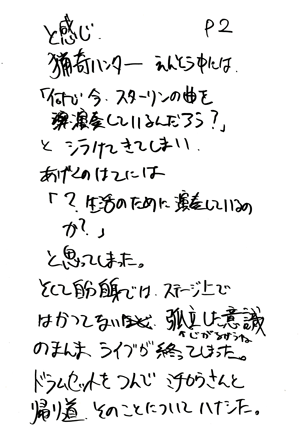 P2
と感じ.
猟奇ハンター えんそう中には、
「何で今、スターリンの曲を
演奏しているんだろう?」
と シラけてきてしまい.
あげくのはてには
「?生活のために演奏しているの
か?」
と思ってしまった。
そして自分自身では、ステージ上で
はかつてないほど、孤立した意識
へじがるような
のまんま、ライブが終ってしまった。
ドラムセットをつんで ミチロウさんと
帰り道、そのことについてハナシた。